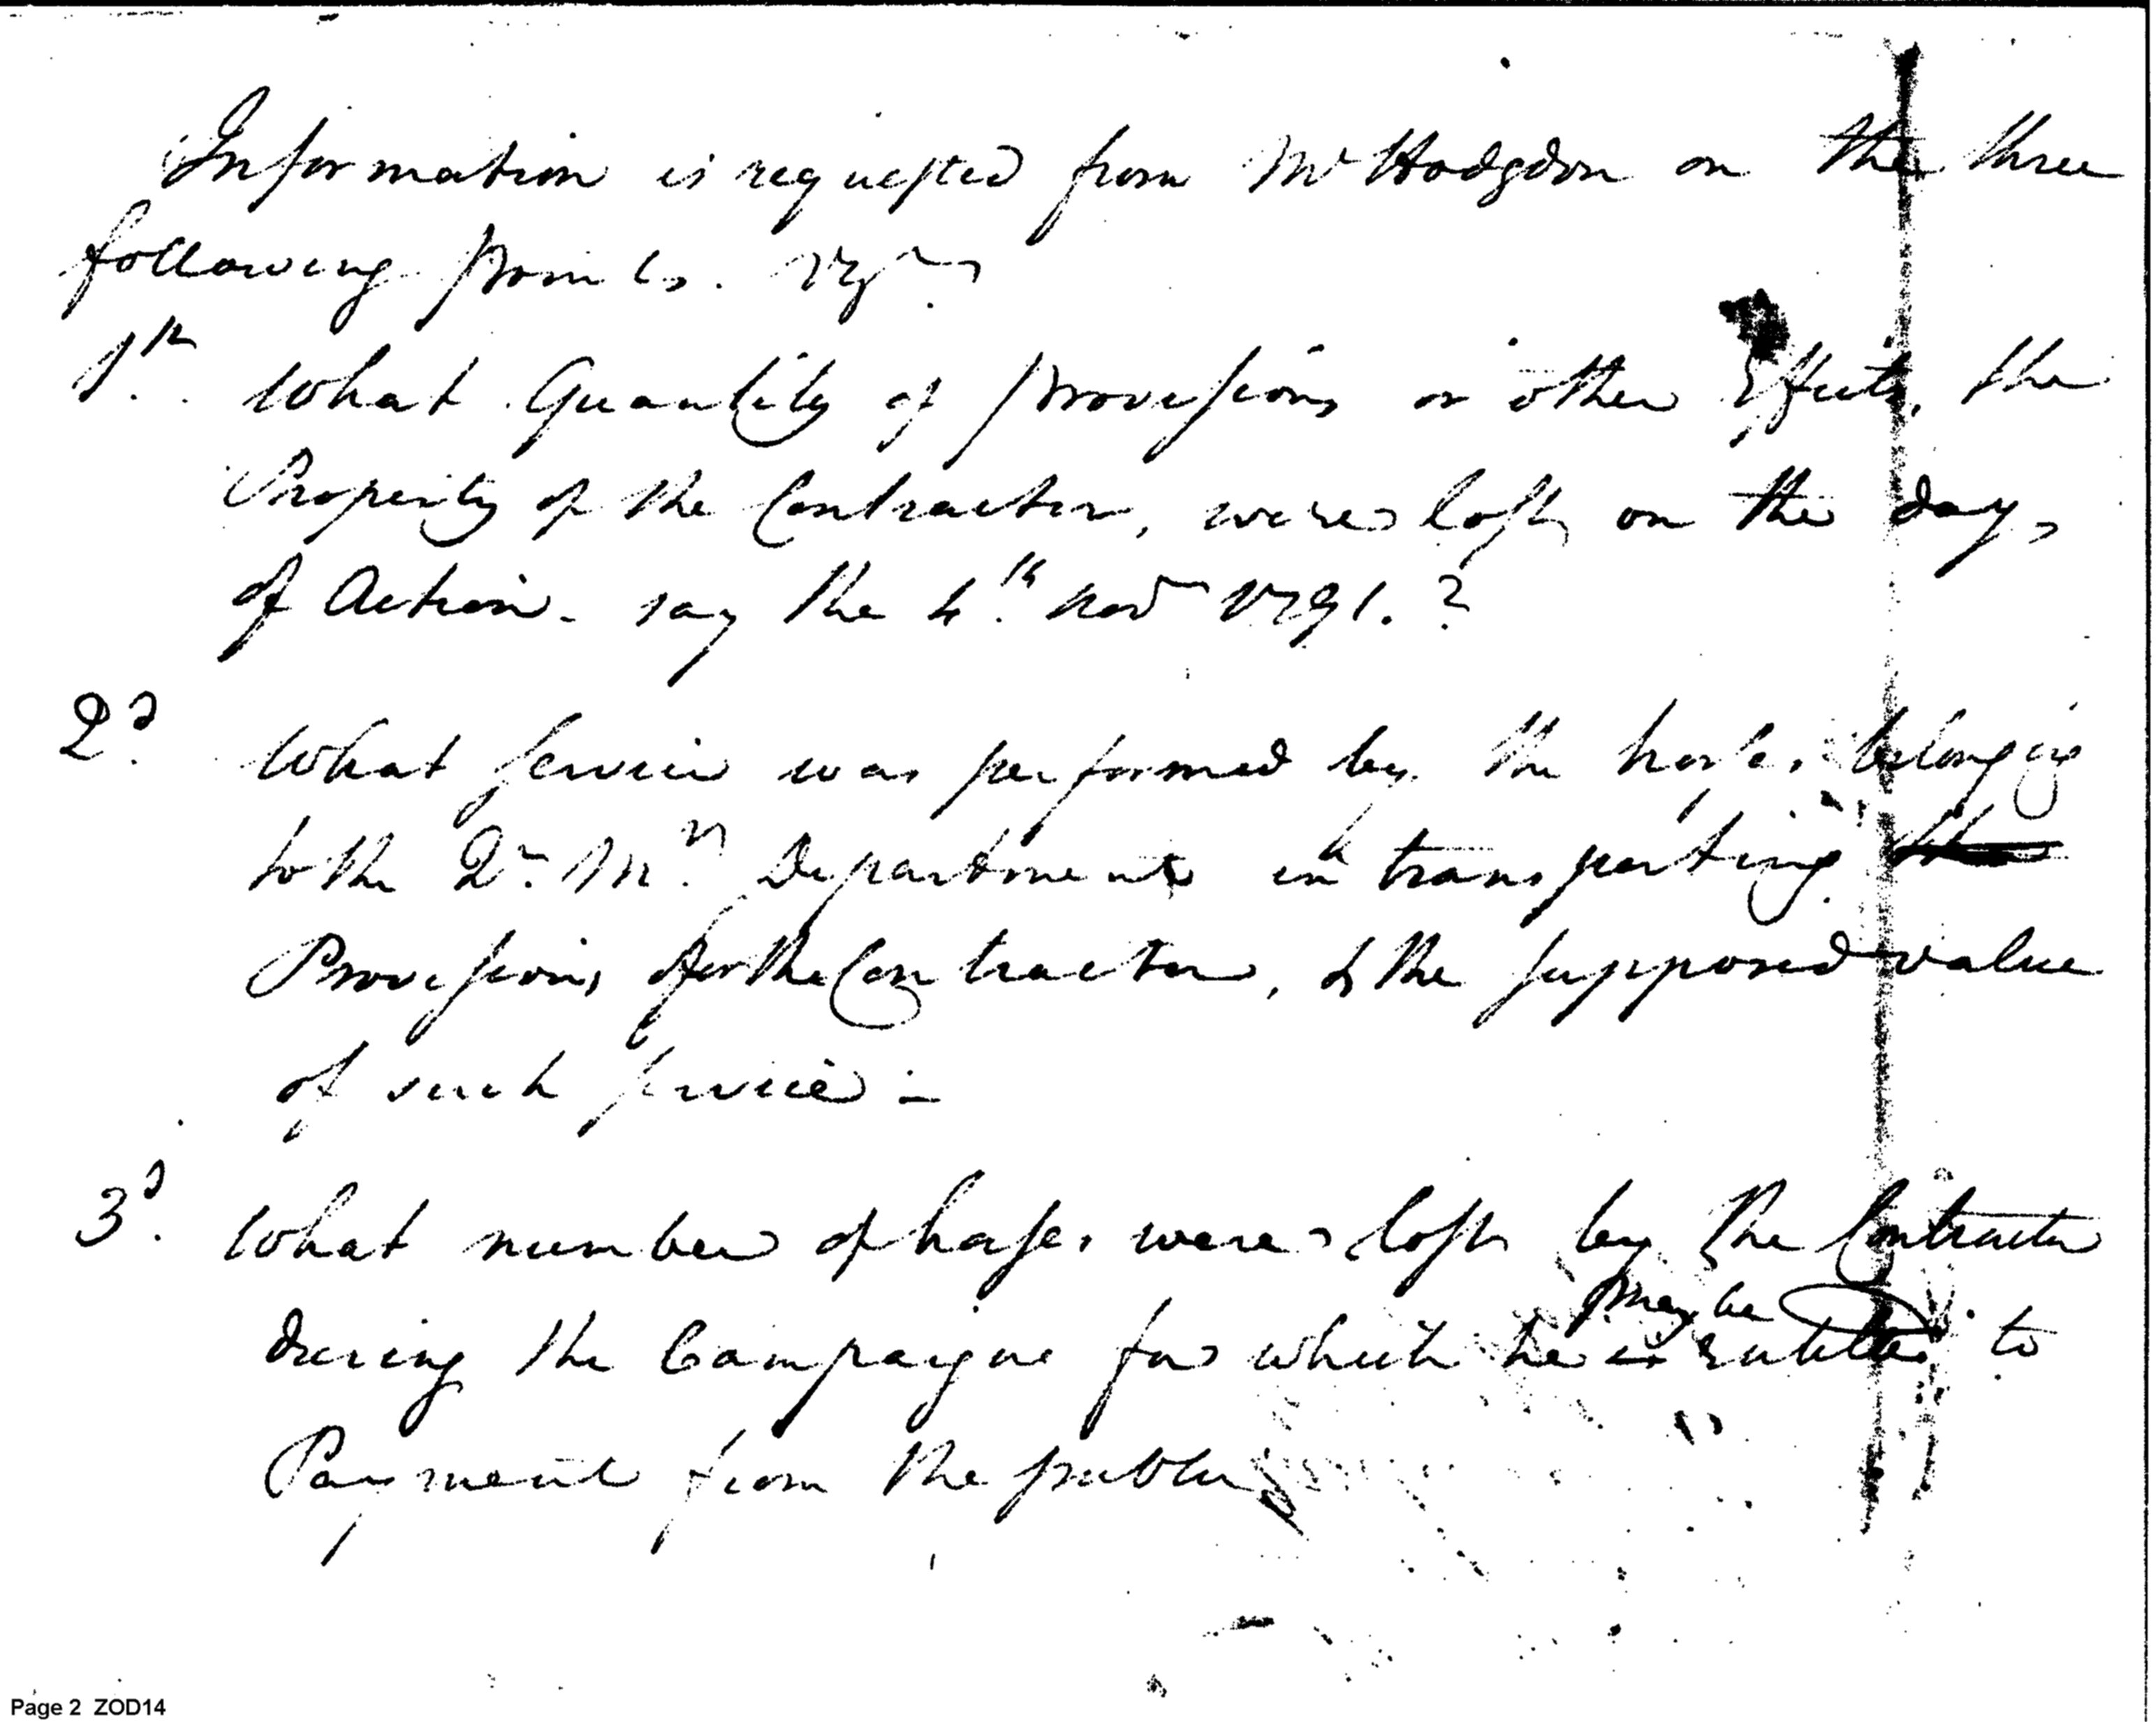 Information is requested from Mr Hodgdon on the three
following points. Vizt.
1st. What Quantity of provisions or other Effects, the
Property of the Contractor, were lost on the day
of Action - say the 4th Nov 1791.?
2d. What service was performed by the horses belonging
to the Qr. Mrs Department in transporting
Provisions for the Contractor, & the supposed value
of such service -
3d. What number of horses were lost by the Contractor
during the Campaign for which he may be entitled to
Payment from the public
Page 2 ZOD14